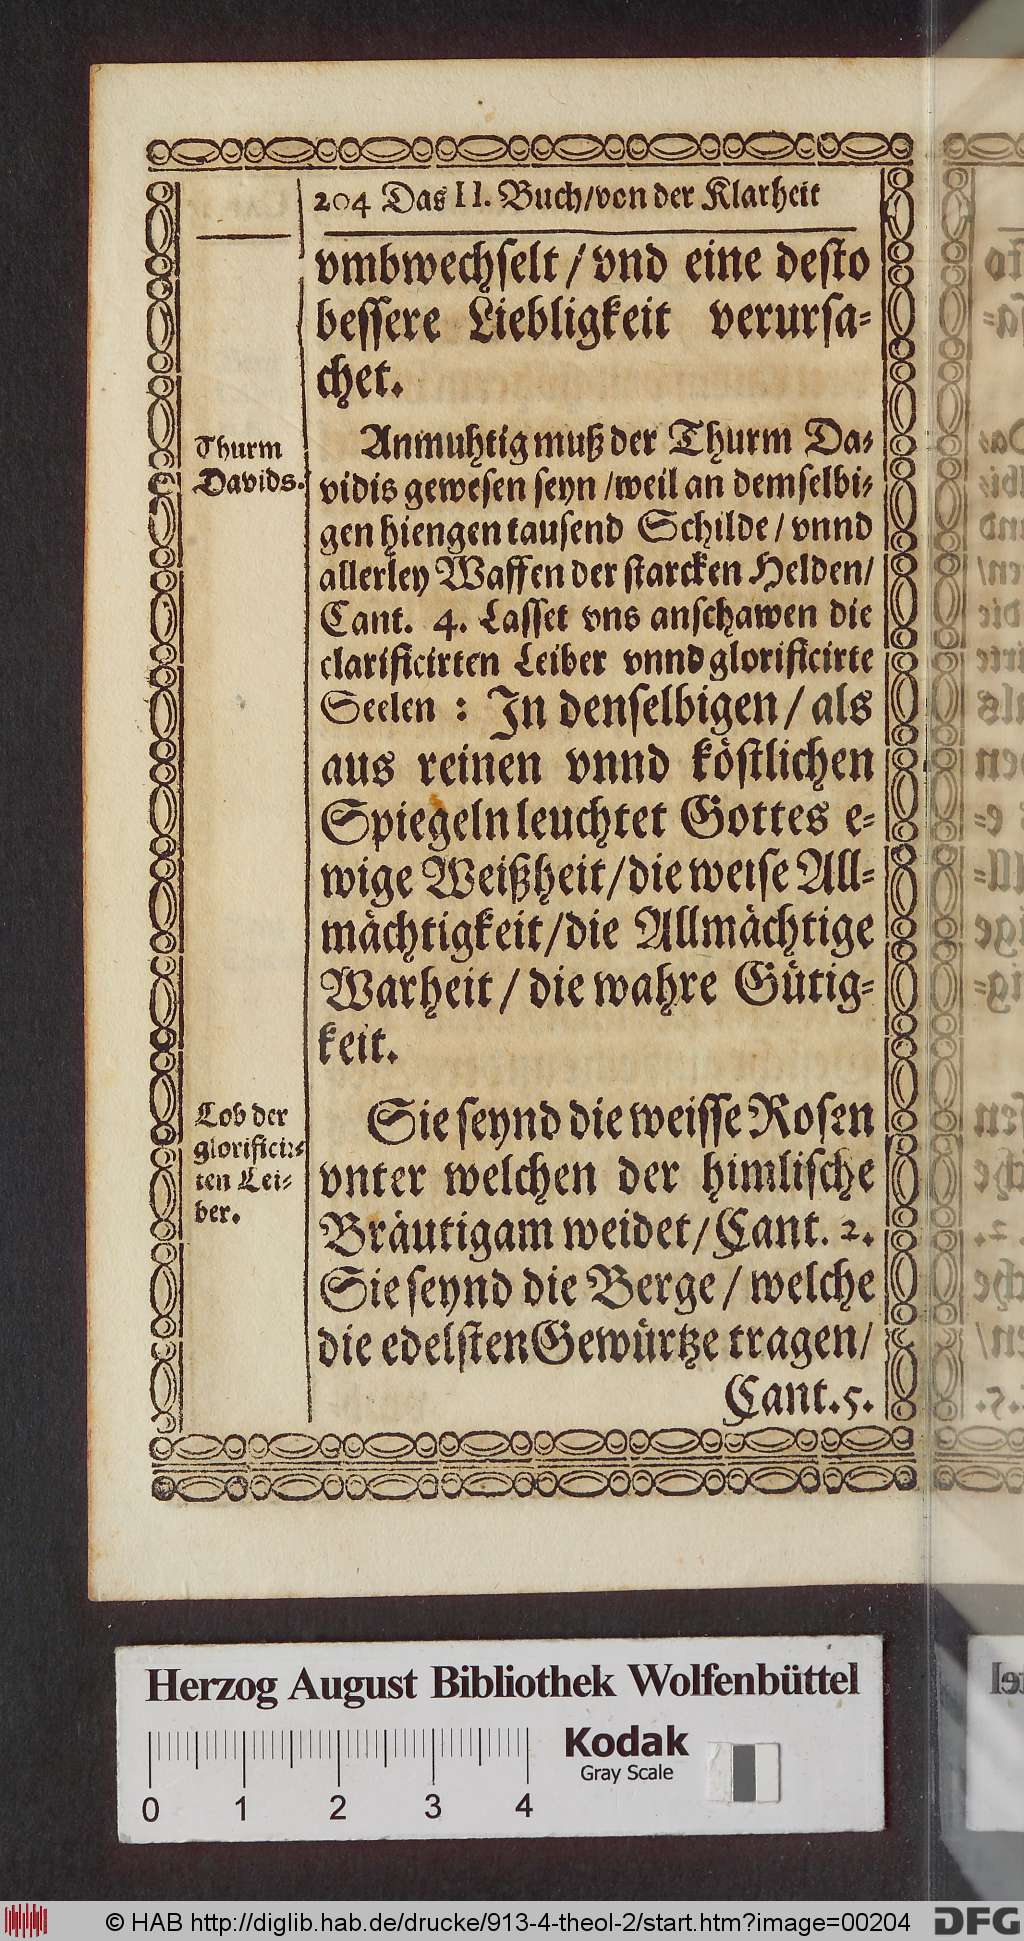 204 Das II. Buch/von der Klarheit
vmbwechselt / vnd eine desto
bessere Liebligkeit verursa-
chet.
Thurm
Davids.
Anmuhtig muß der Thurm Da-
vidis gewesen seyn /weil an demselbi-
gen hiengen tausend Schilde / vnnd
allerley Waffen der starcken Helden/
Cant. 4. Lasset vns anschawen die
clarificirten Leiber vnnd glorificirte
Seelen : In denselbigen / als
aus reinen vnnd köstlichen
Spiegeln leuchtet Gottes e-
wige Weißheit/die weise All-
mächtigkeit/die Allmächtige
Warheit / die wahre Gütig-
keit.
Lob der
glorificir-
ten Lei-
ber.
Sie seynd die weisse Rosen
vnter welchen der himlische
Bräutigam weidet/Cant. 2.
Sie seynd die Berge / welche
die edelsten Gewürtze tragen/
Cant.5.
Herzog August Bibliothek Wolfenbüttel
Kodak
Gray Scale
0 1 2 3 4
© HAB http://diglib.hab.de/drucke/913-4-theol-2/start.htm?image=00204
DFG